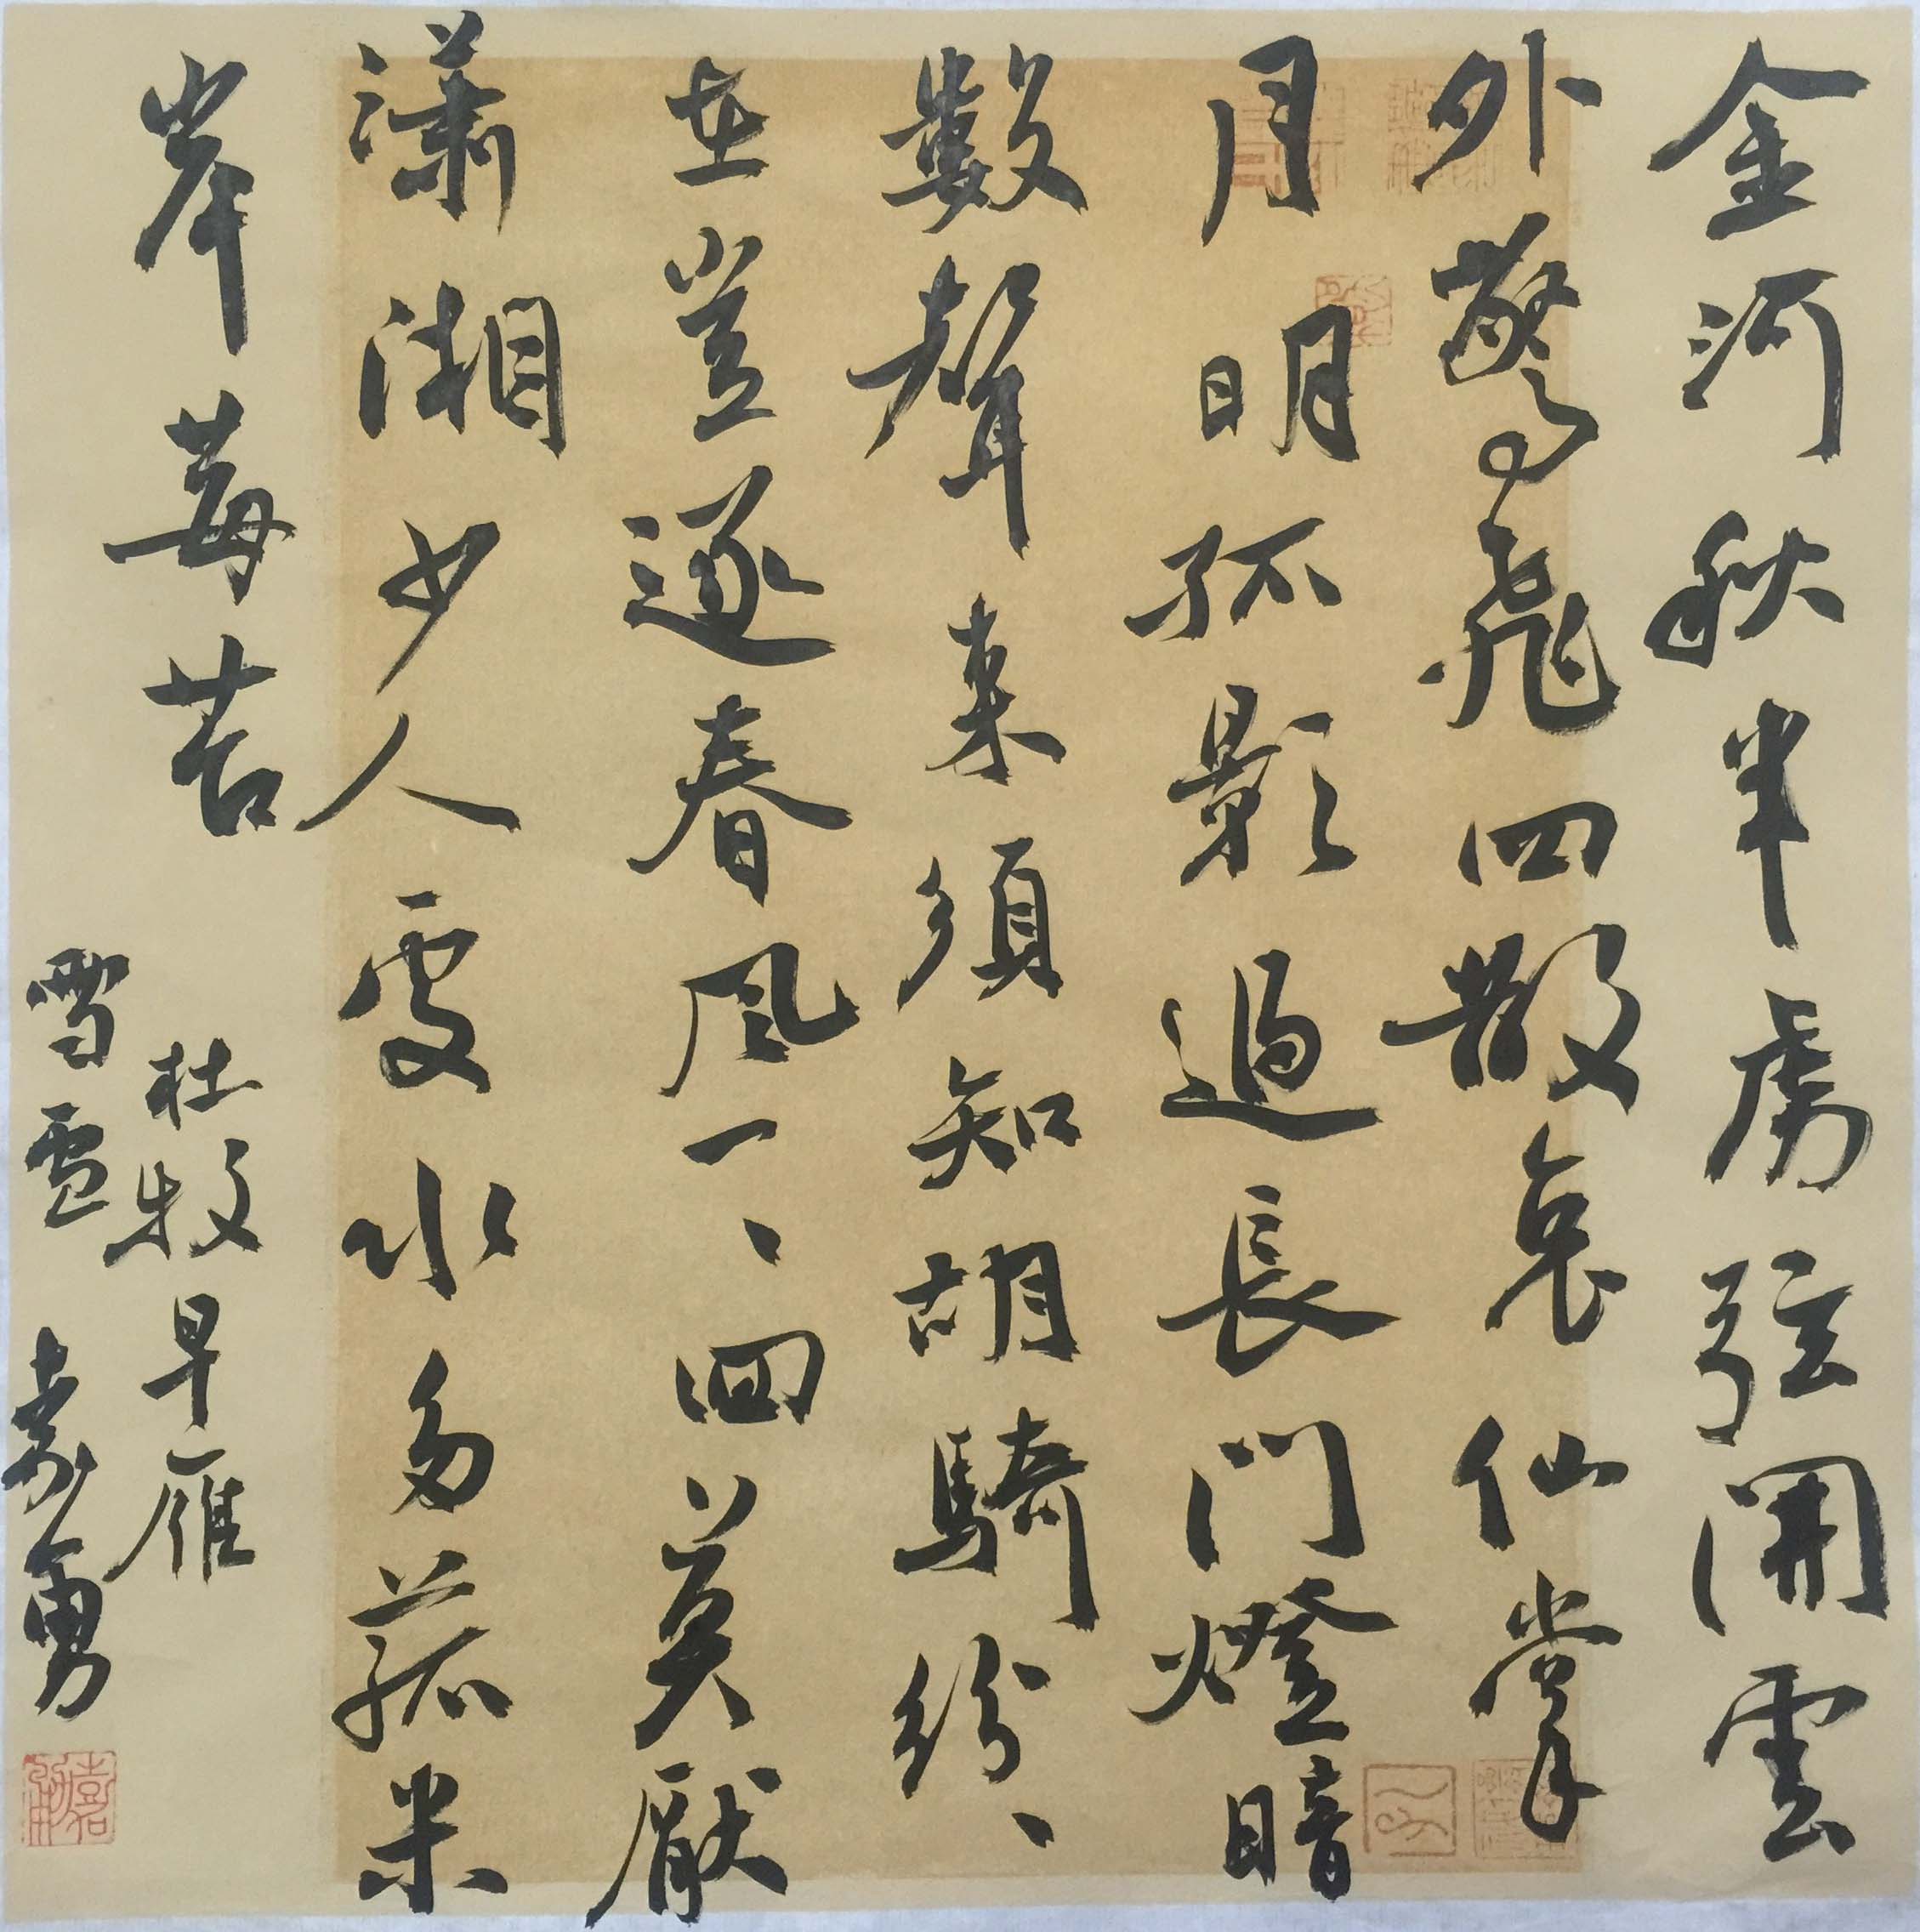 金河秋半虜弦開雲
外驚飛四散哀仙掌
月明孤影過長門燈暗
數聲來須知胡騎紛、
在豈逐春風一、回莫厭
瀟湘少人處水多菰米
岸莓苔
杜牧早雁
雪
嘉勇